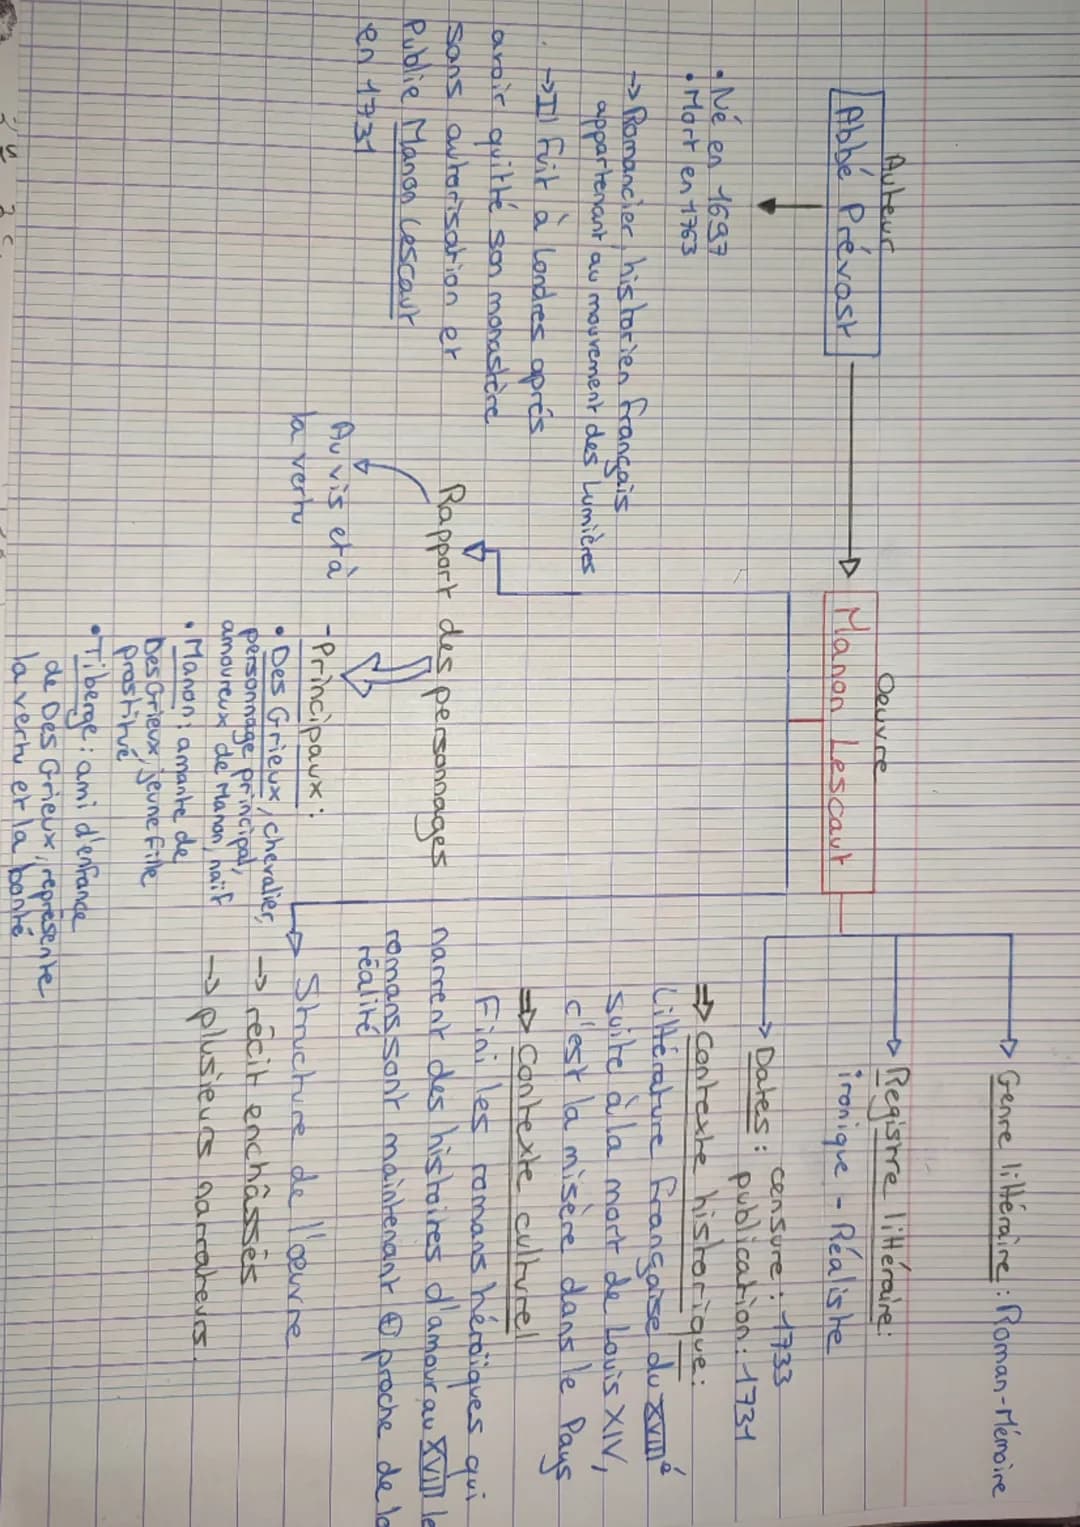 Auteur
Abbé Prévost
• Né en 1697
• Mort en 1763
→ Romancier, historien français
appartenant au mouvement des Lumières
→ Il fuit à Londres après
avoir quitté son monastère
sans autorisation et
Publie Manon Lescaut
en 1731
Oeuvre
Manon Lescaut
Rapport des personnages
Au vis et à
la vertu
- Principaux :
• Des Grieux, chevalier,
personnage principal,
amoureux de Manon, naïf
• Manon : amante de
Des Grieux, jeune fille
prostitué
• Tiberge : ami d'enfance
de Des Grieux, représente
la vertu et la bonté
Genre littéraire : Roman-Mémoire
Registre littéraire :
ironique - Réaliste
Dates : censure : 1733
publication : 1731
⇒ Contexte historique :
Littérature française du XVIIIè
suite à la mort de Louis XIV,
c'est la misère dans le Pays
⇒ Contexte culturel
Fini les romans héroïques qui
narrent des histoires d'amour au XVIII le
romans sont maintenant ⊕ proche de la
réalité
Structure de l'œuvre
→ récit enchâssés
→ plusieurs narrateurs.